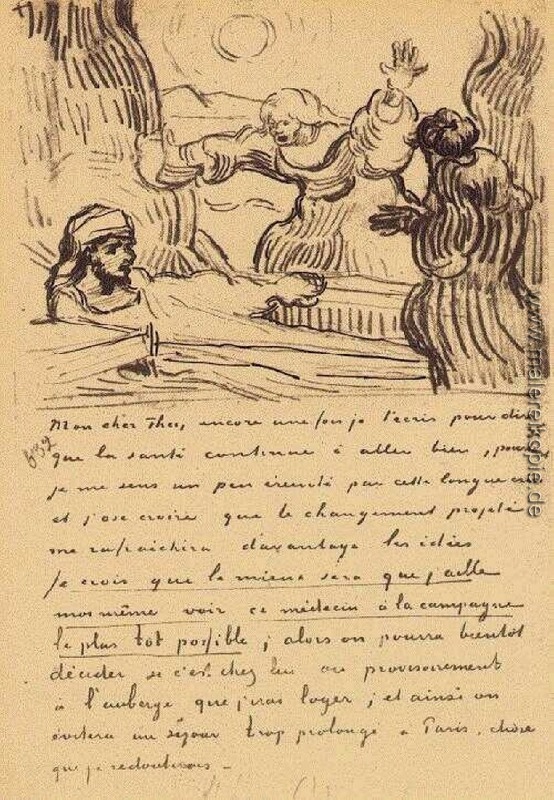 Mon cher Theo, encore une fois je t'écris pour dire
que la santé continue à aller bien, pourtant
je me sens un peu éreinté par cette longue
et j'ose croire que le changement projeté
me rafraichira davantage les idées
Je crois que le mieux sera que j'aille
moi même voir ce médecin à la campagne
le plus tot possible ; alors on pourra bientot
décider si c'est chez lui ou provisoirement
à l'auberge que j'irai loger ; et ainsi on
évitera un séjour trop prolongé à Paris, chose
que je redouterais _
www.malereikopie.de